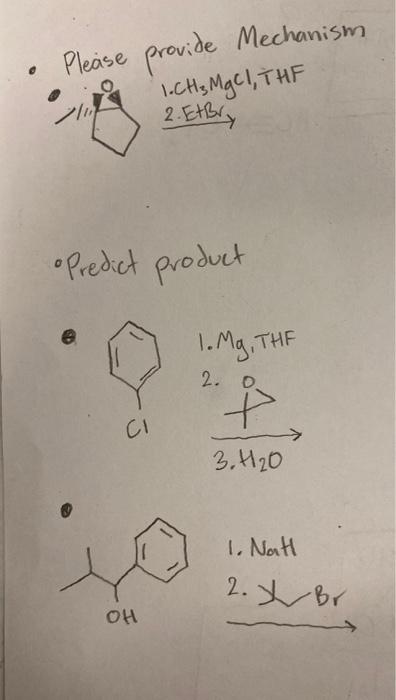 • Please provide Mechanism
O
1.CH3MgCl, THF
2.EtBr
•Predict product
1.Mg, THF
2. O
Cl
3.H2O
1. NaH
2. Br
OH